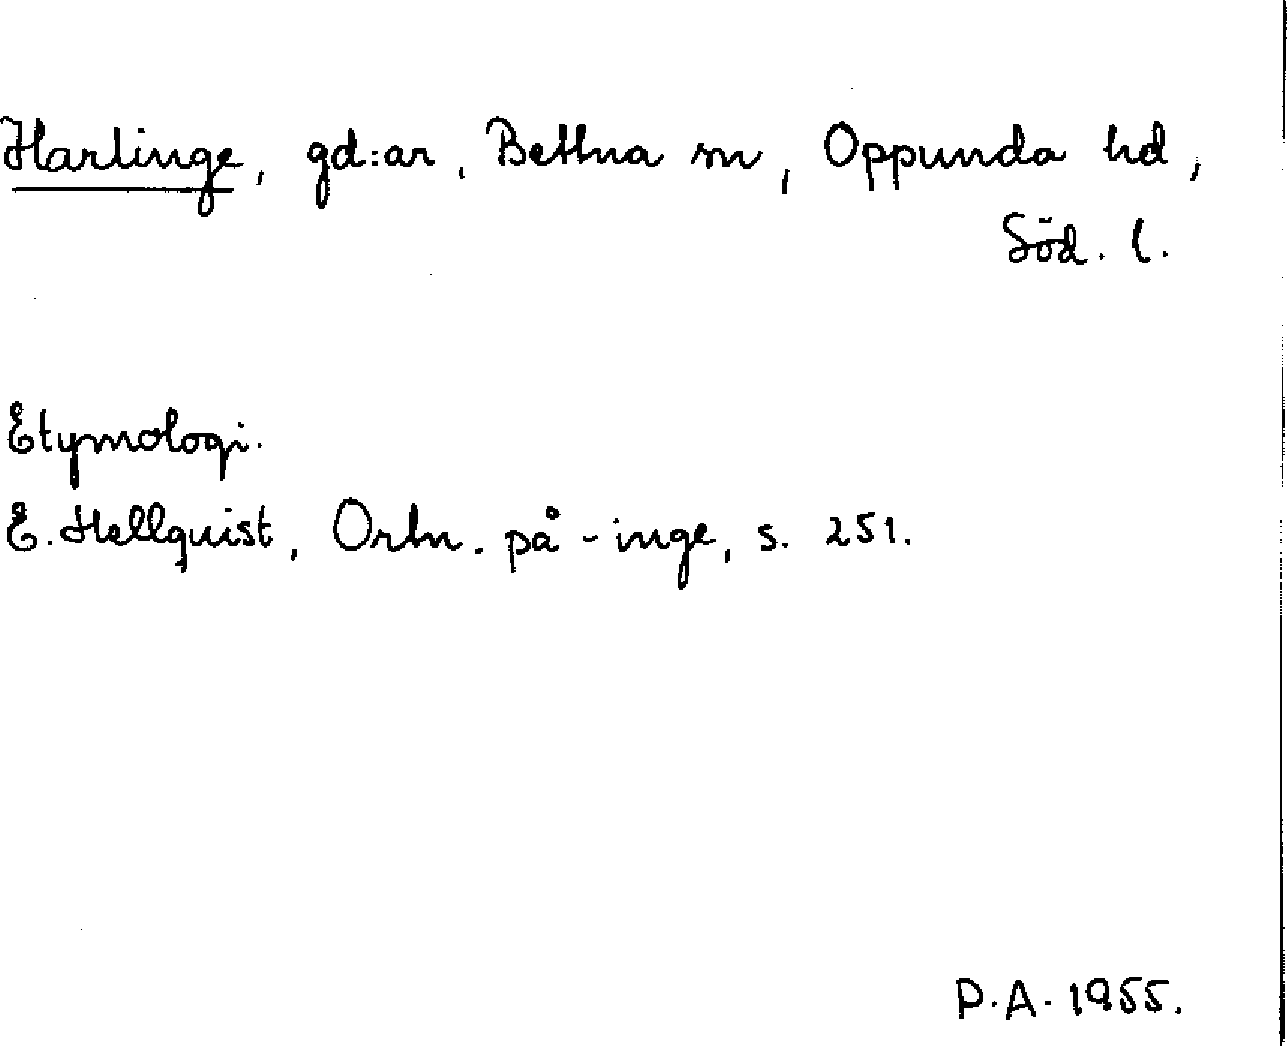 Harlinge, gd:ar, Bettna sn, Oppunda hd,
Söd. l.
Etymologi.
E. Hellquist, Ortn. på -inge, s. 251.
P.A. 1955.